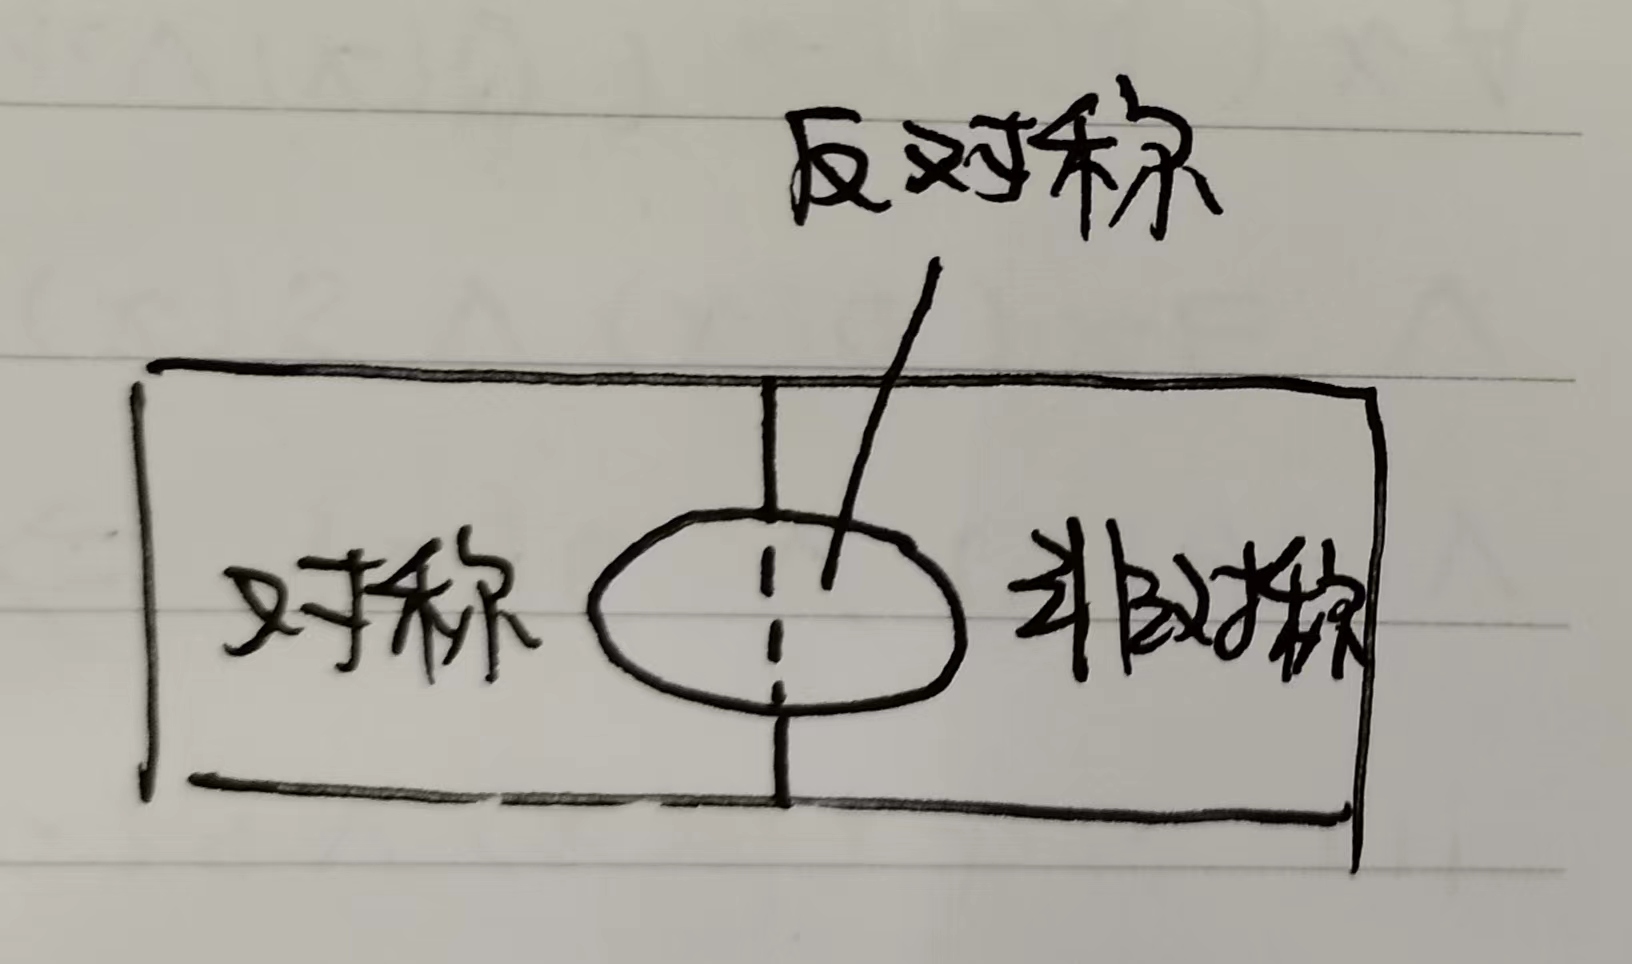 反对称
对称
非对称